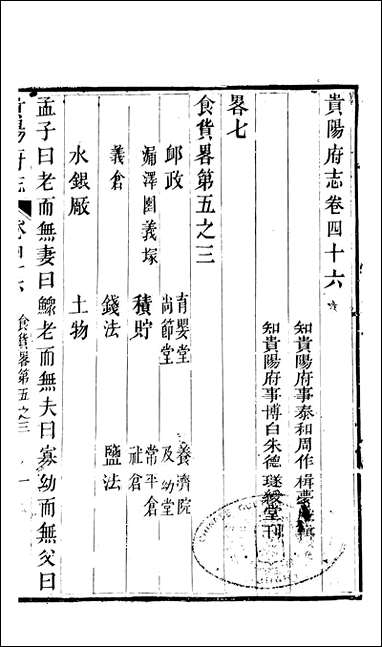 貴陽府志卷四十六
知貴陽府事泰和周作楫
知貴陽府事博白朱德璲 堂刊
畧七
食貨畧第五之三
卹政 育嬰堂 養濟院
尚節堂 及幼堂
漏澤園義塚 積貯 常平倉
社倉
義倉 錢法 鹽法
水銀厰 土物
孟子曰老而無妻曰鰥老而無夫曰寡幼而無父曰
貴陽府志 卷四十六 食貨畧第五之三 一